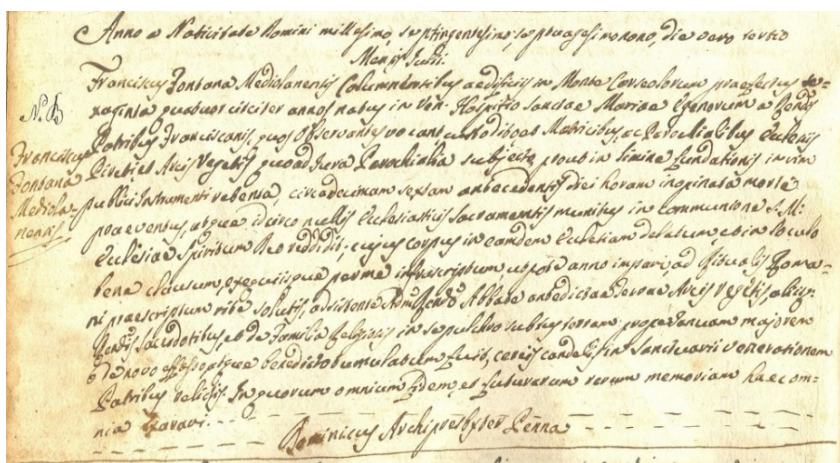 Anno a Nativitate Domini millesimo septingentesimo, septuagesimo nono, die vero tertio
Mensis Julii.
Franciscus Fontana Mediolanensis Columnentibus aedificiis in Monte Corseolorum praefectus se-
xaginta quatuor circiter annos natus in Ven: Hospitio Sanctae Mariae Egenorum a Rendis
Patribus Franciscanis, quos Observantes vocant custodito et Matricibus, ac Parochialibus Ecclesiis
Pireti, et Arcis Vegetis quoad Jura Parochialia subjecto prout in limine fundationis in vim
publici Instrumenti rebensa, circa decimam sextam antecedentis diei horam inopinata morte
praeventus, atque idcirco nullis Ecclesiasticis Sacramentis munitus in communione S. M:
Ecclesiae Spiritum Deo reddidit, cujus corpus in eamdem Ecclesiam delatum, et in loculo
bene clausum, exequiisque per me infrascriptum, utpote anno impari, ad Ritualis Roma-
ni praescriptum rite solutis, adsistente Admo Rendo Abbate antedictae Terrae Arcis Vegetis, aliisq;
Rendis Sacerdotibus, et de Familia Religiosis in sepulchro subtus terram prope Januam majorem
de novo effosso, atque benedicto tumulatum fuit, cereis candelis in Sanctuarii venerationem
Patribus relictis. In quorum omnium fidem, et futurarum rerum memoriam haec om-
nia exaravi.
Dominicus Archipresbyter Penna
N. 5
Franciscus
Fontana
Mediola-
nensis